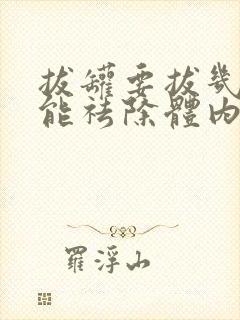 拔罐要拔幾
能祛除體內
羅浮山